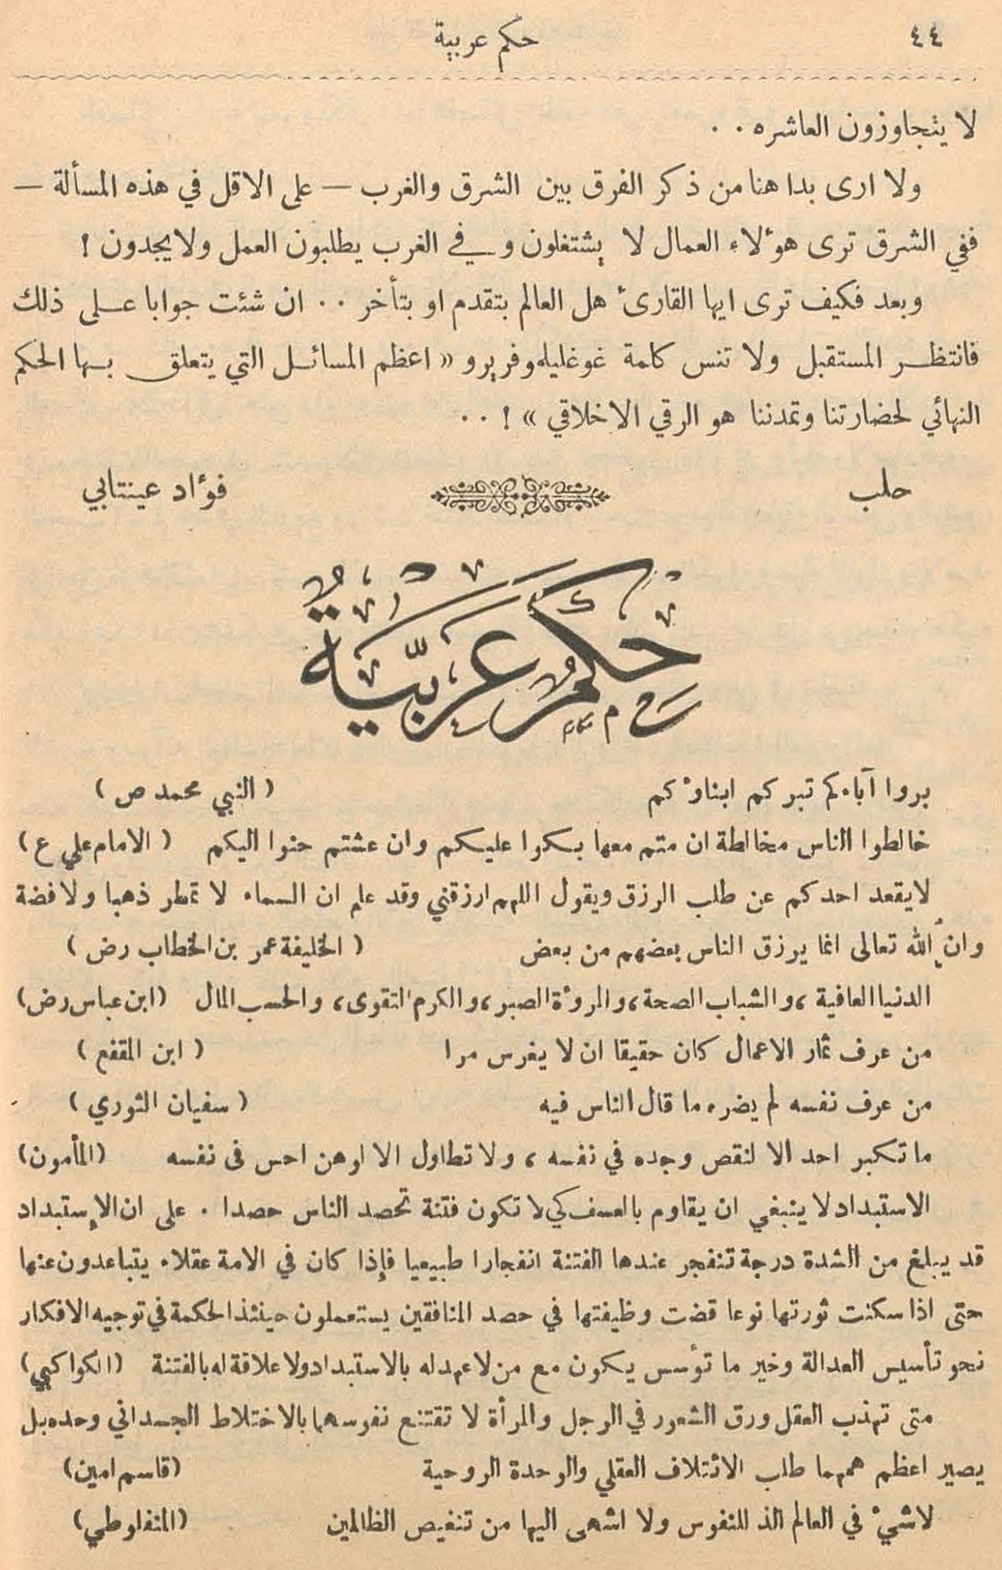 ٤٤
حكم عربية
لا يتجاوزون العاشره . .
ولا ارى بدا هنا من ذكر الفرق بين الشرق والغرب — على الاقل في هذه المسألة —
ففي الشرق ترى هؤلاء العمال لا يشتغلون وفي الغرب يطلبون العمل ولا يجدون !
وبعد فكيف ترى ايها القارئ هل العالم بتقدم او بتأخر . . ان شئت جوابا على ذلك
فانتظر المستقبل ولا تنس كلمة غوغليلمو فريرو « اعظم المسائل التي يتعلق بها الحكم
النهائي لحضارتنا وتمدننا هو الرقي الاخلاقي » ! . .
حلب
فؤاد عينتابي
حكم عربية
بروا آباءكم تبركم ابناؤكم ( النبي محمد ص )
خالطوا الناس مخالطة ان متم معها بكوا عليكم وان عشتم حنوا اليكم ( الامام علي ع )
لا يقعد احدكم عن طلب الرزق ويقول اللهم ارزقني وقد علم ان السماء لا تمطر ذهبا ولا فضة
وان الله تعالى انما يرزق الناس بعضهم من بعض ( الخليفة عمر بن الخطاب رض )
الدنيا العافية ، والشباب الصحة ، والمروءة الصبر ، والكرم التقوى ، والحسب المال (ابن عباس رض)
من عرف ثمار الاعمال كان حقيقا ان لا يغرس مرا ( ابن المقفع )
من عرف نفسه لم يضره ما قال الناس فيه ( سفيان الثوري )
ما تكبر احد الا لنقص وجده في نفسه ، ولا تطاول الا لوهن احس فى نفسه (المأمون)
الاستبداد لا ينبغي ان يقاوم بالعسف كي لا تكون فتنة تحصد الناس حصدا . على ان الإستبداد
قد يبلغ من الشدة درجة تنفجر عندها الفتنة انفجارا طبيعيا فإذا كان في الامة عقلاء يتباعدون عنها
حتى اذا سكنت ثورتها نوعا قضت وظيفتها في حصد المنافقين يستعملون حينئذ الحكمة في توجيه الافكار
نحو تأسيس العدالة وخير ما تؤسس يكون مع من لا عهد له بالاستبداد ولا علاقة له بالفتنة (الكواكبي)
متى تهذب العقل ورق الشعور في الرجل والمرأة لا تقتنع نفوسهما بالاختلاط الجسداني وحده بل
يصير اعظم همهما طلب الائتلاف العقلي والوحدة الروحية (قاسم امين)
لا شيء في العالم الذ للنفوس ولا اشهى اليها من تنغيص الظالمين (المنفلوطي)